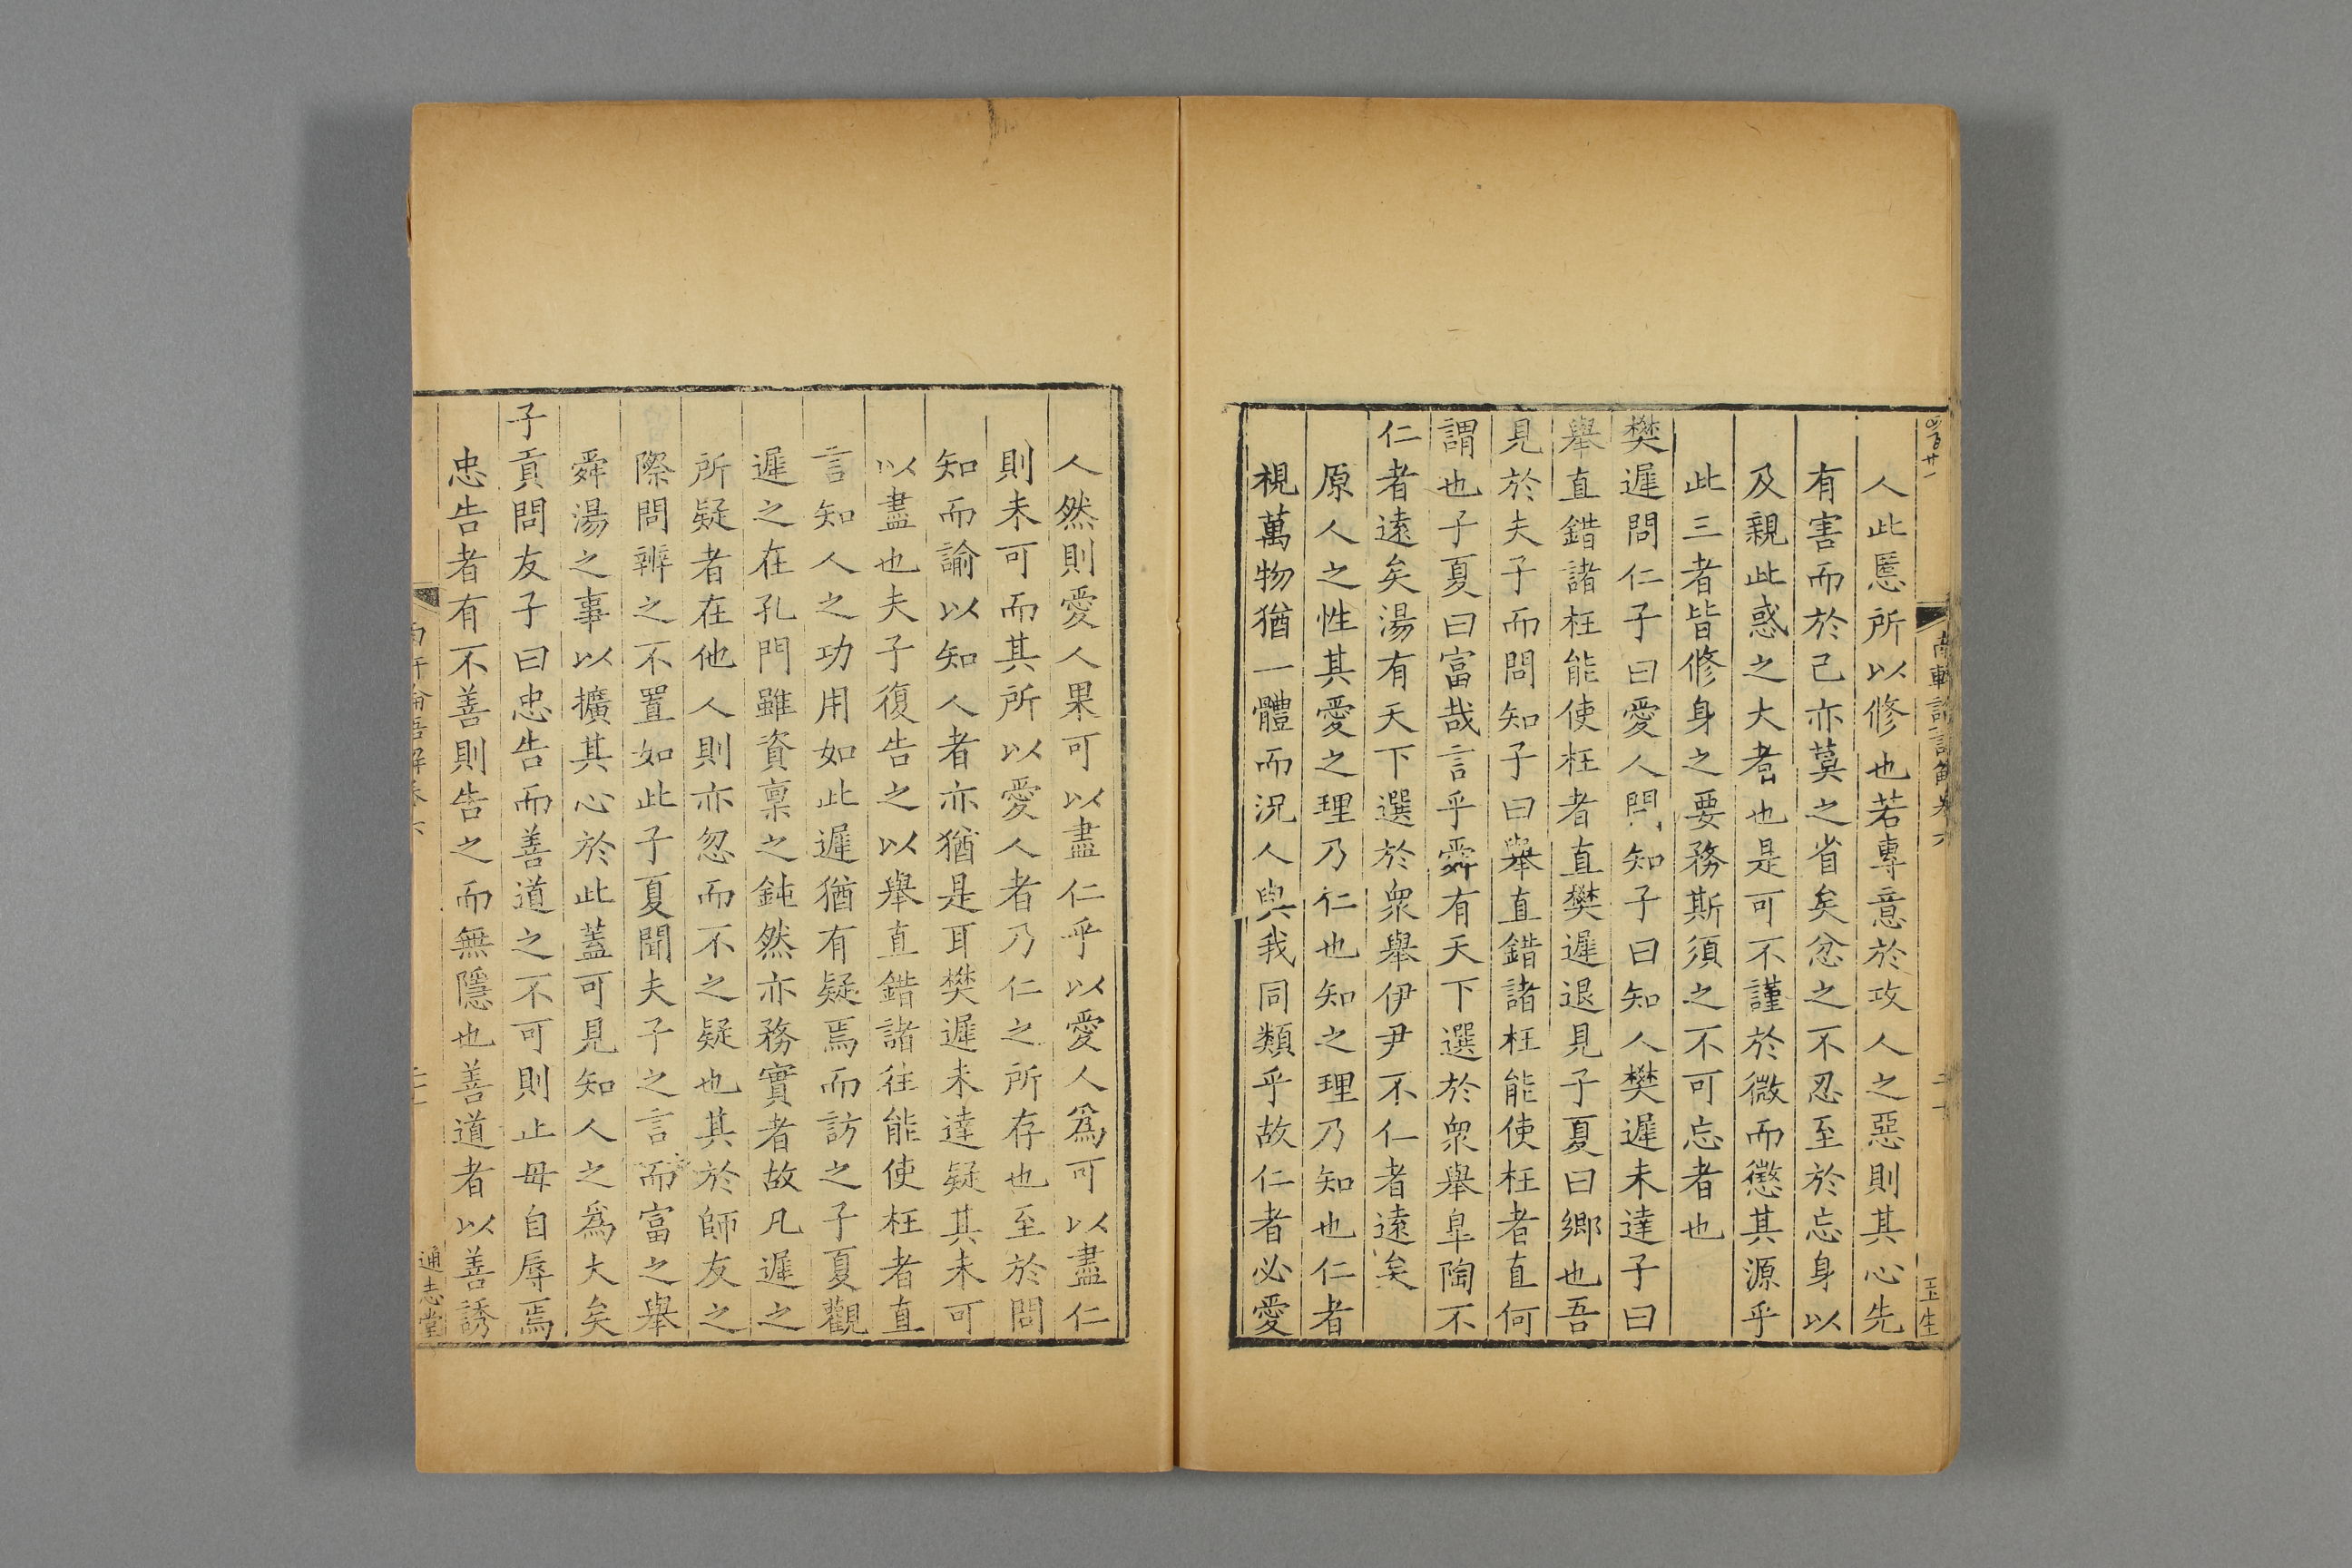 人此慝所以修也若專意於攻人之惡則其心先
有害而於己亦莫之省矣忿之不忍至於忘身以
及親此惑之大者也是可不謹於微而懲其源乎
此三者皆修身之要務斯須之不可忘者也
樊遲問仁子曰愛人問知子曰知人樊遲未達子曰
舉直錯諸枉能使枉者直樊遲退見子夏曰鄉也吾
見於夫子而問知子曰舉直錯諸枉能使枉者直何
謂也子夏曰富哉言乎舜有天下選於衆舉臯陶不
仁者遠矣湯有天下選於衆舉伊尹不仁者遠矣
原人之性其愛之理乃仁也知之理乃知也仁者
視萬物猶一體而況人與我同類乎故仁者必愛
人然則愛人果可以盡仁乎以愛人爲可以盡仁
則未可而其所以愛人者乃仁之所存也至於問
知而諭以知人者亦猶是耳樊遲未達疑其未可
以盡也夫子復告之以舉直錯諸枉能使枉者直
言知人之功用如此遲猶有疑焉而訪之子夏觀
遲之在孔門雖資稟之鈍然亦務實者故凡遲之
所疑者在他人則亦忽而不之疑也其於師友之
際問辨之不置如此子夏聞夫子之言而富之舉
舜湯之事以擴其心於此蓋可見知人之爲大矣
子貢問友子曰忠告而善道之不可則止毋自辱焉
忠告者有不善則告之而無隱也善道者以善誘
通志堂